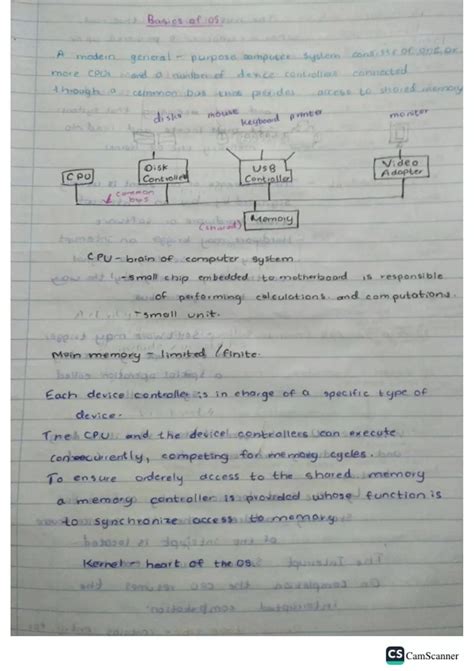 Basics of OS
A modern general-purpose computer system consists of one or
more CPUs and a number of device controllers connected
through a common bus that provides access to shared memory
disks mouse keyboard printer monitor
CPU Disk Controller USB Controller Video Adapter
common bus
(shared) Memory
CPU - brain of computer system
- small chip embedded to motherboard is responsible
of performing calculations and computations.
- small unit.
Main memory = limited / finite.
Each device controller is in charge of a specific type of
device.
The CPU and the device controllers can execute
concurrently, competing for memory cycles.
To ensure orderely access to the shared memory
a memory controller is provided whose function is
to synchronize access to memory
Kernel - heart of the OS.
CS CamScanner